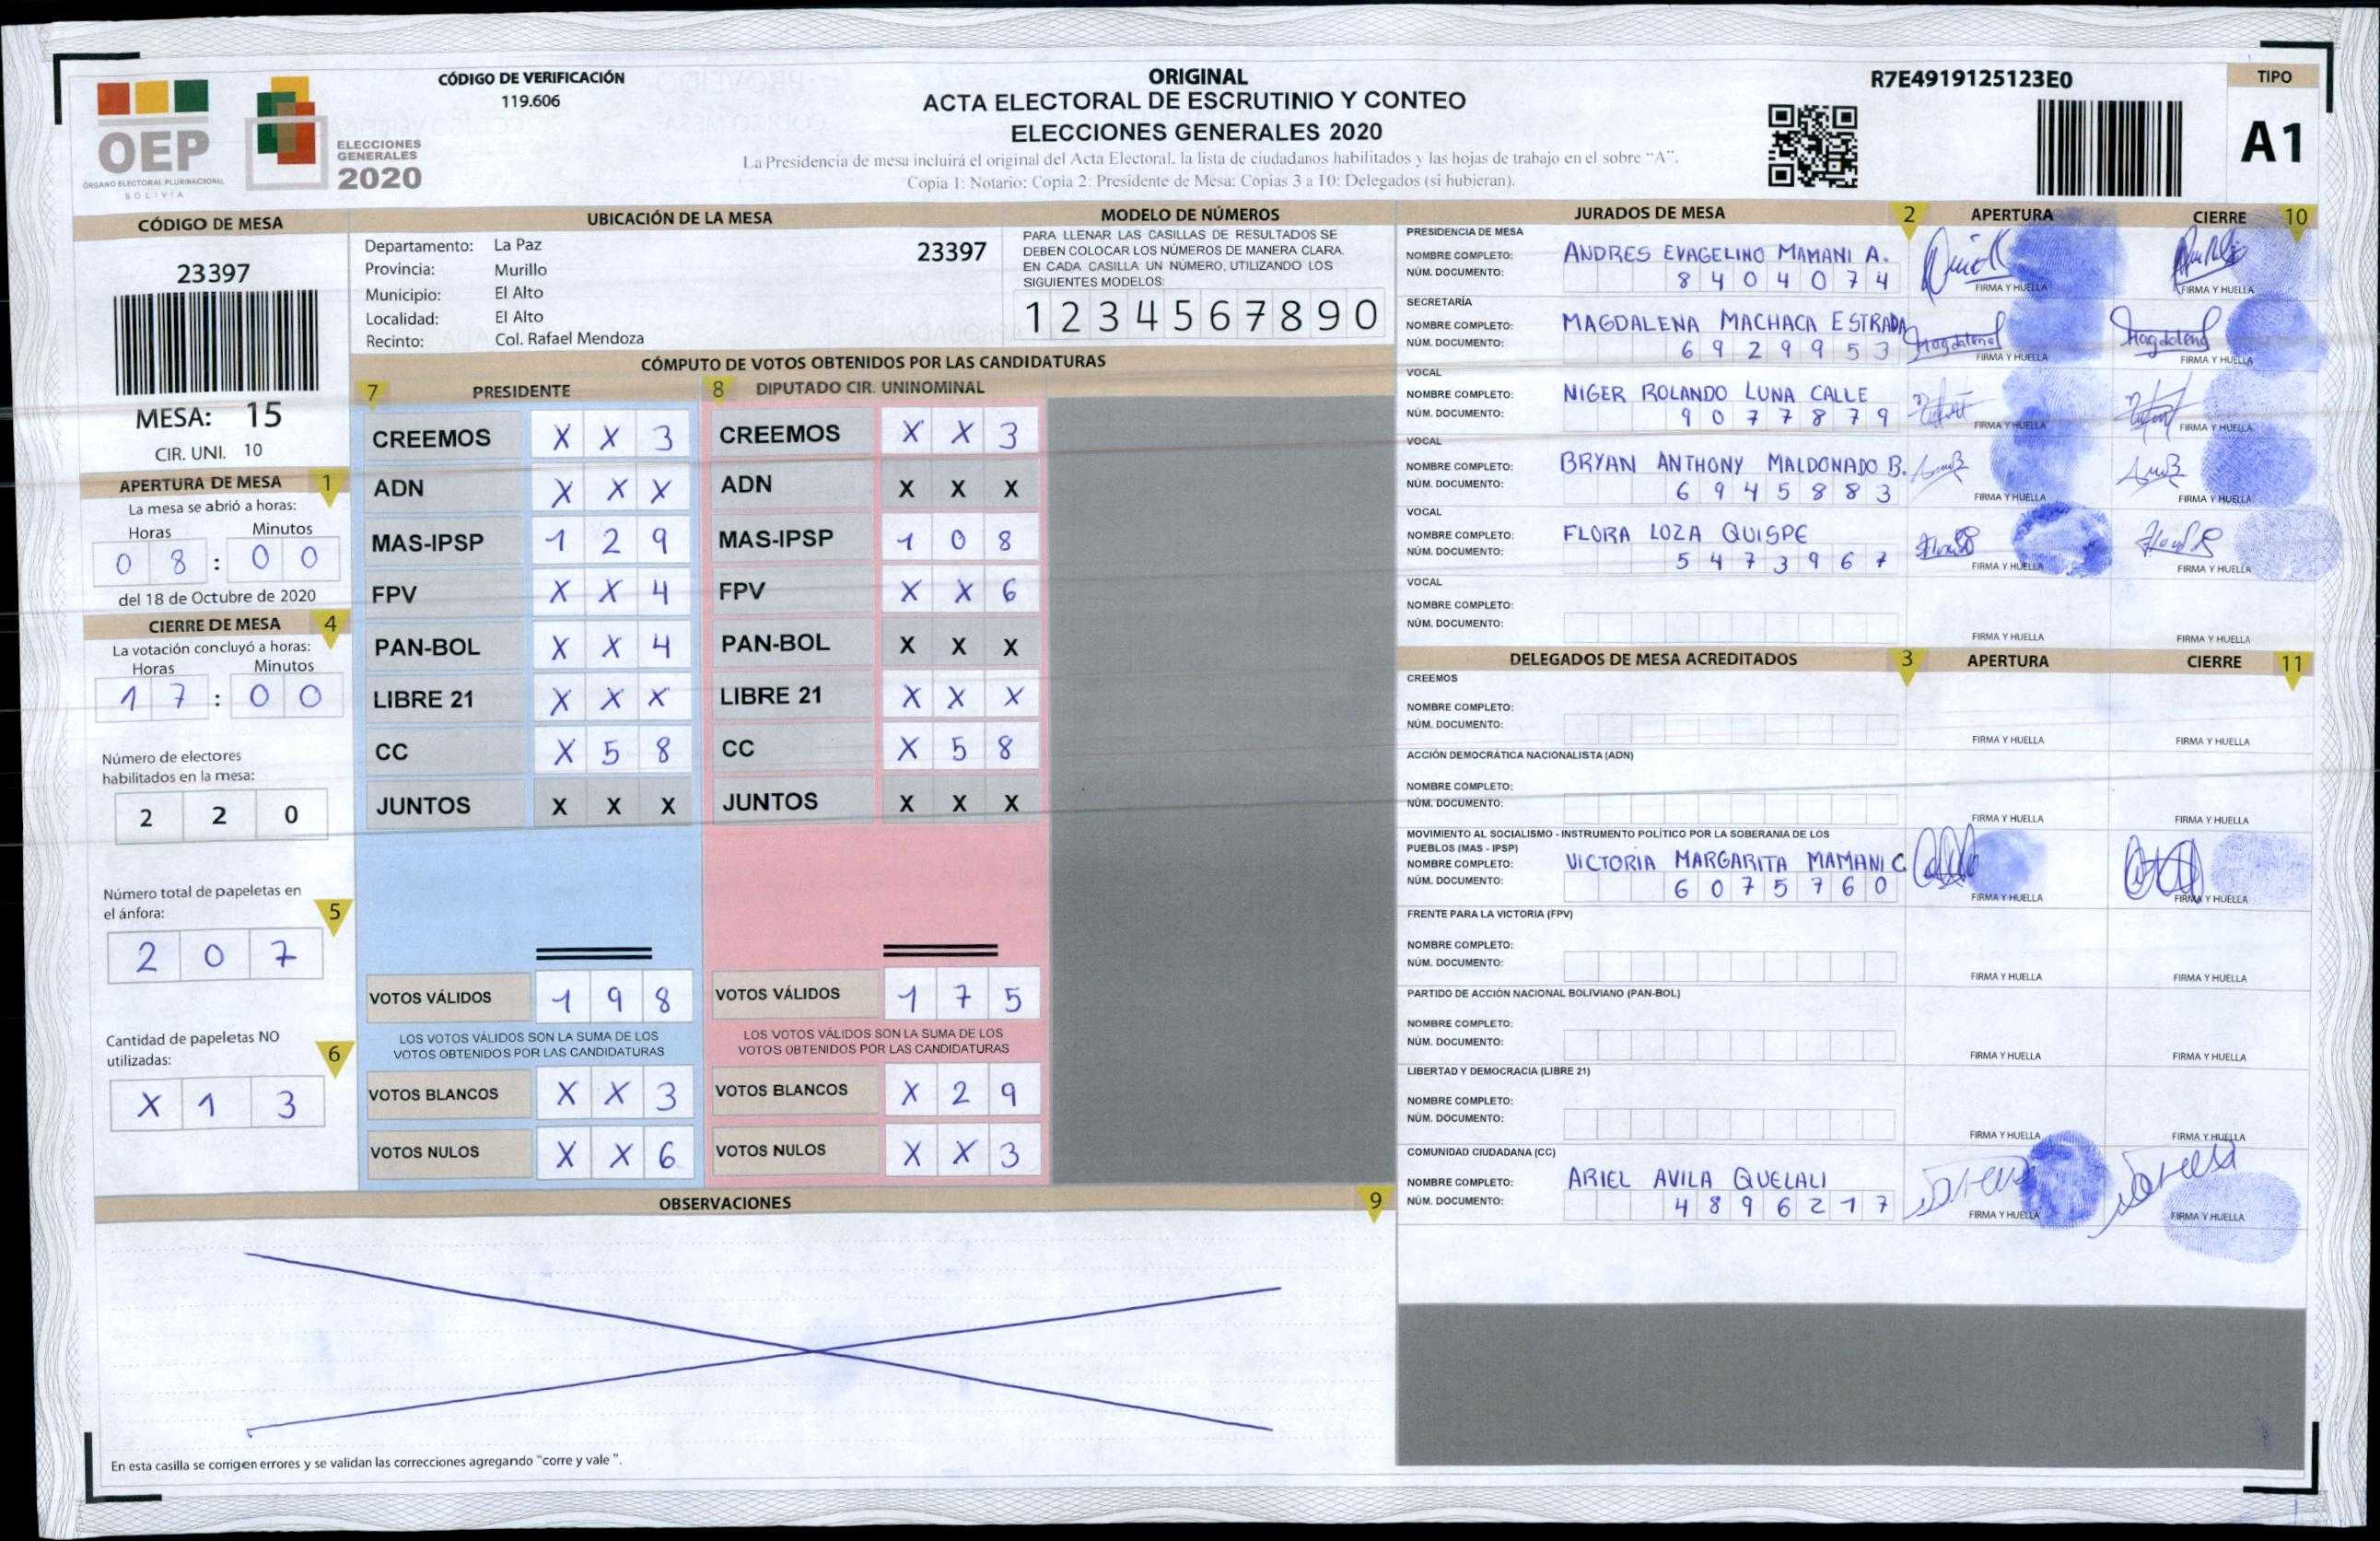 OEP
ÓRGANO ELECTORAL PLURINACIONAL
BOLIVIA
ELECCIONES
GENERALES
2020
CÓDIGO DE VERIFICACIÓN
119.606
ORIGINAL
ACTA ELECTORAL DE ESCRUTINIO Y CONTEO
ELECCIONES GENERALES 2020
La Presidencia de mesa incluirá el original del Acta Electoral, la lista de ciudadanos habilitados y las hojas de trabajo en el sobre "A".
Copia 1: Notario; Copia 2: Presidente de Mesa; Copias 3 a 10: Delegados (si hubieran).
R7E4919125123E0
TIPO
A1
CÓDIGO DE MESA
23397
MESA: 15
CIR. UNI. 10
UBICACIÓN DE LA MESA
Departamento: La Paz
Provincia: Murillo
Municipio: El Alto
Localidad: El Alto
Recinto: Col. Rafael Mendoza
23397
MODELO DE NÚMEROS
PARA LLENAR LAS CASILLAS DE RESULTADOS SE
DEBEN COLOCAR LOS NÚMEROS DE MANERA CLARA.
EN CADA CASILLA UN NÚMERO, UTILIZANDO LOS
SIGUIENTES MODELOS:
1 2 3 4 5 6 7 8 9 0
APERTURA DE MESA 1
La mesa se abrió a horas:
Horas Minutos
0 8 : 0 0
del 18 de Octubre de 2020
CIERRE DE MESA 4
La votación concluyó a horas:
Horas Minutos
1 7 : 0 0
Número de electores
habilitados en la mesa:
2 2 0
Número total de papeletas en
el ánfora: 5
2 0 7
Cantidad de papeletas NO
utilizadas: 6
X 1 3
CÓMPUTO DE VOTOS OBTENIDOS POR LAS CANDIDATURAS
7 PRESIDENTE
CREEMOS X X 3
ADN X X X
MAS-IPSP 1 2 9
FPV X X 4
PAN-BOL X X 4
LIBRE 21 X X X
CC X 5 8
JUNTOS X X X
VOTOS VÁLIDOS 1 9 8
LOS VOTOS VÁLIDOS SON LA SUMA DE LOS
VOTOS OBTENIDOS POR LAS CANDIDATURAS
VOTOS BLANCOS X X 3
VOTOS NULOS X X 6
8 DIPUTADO CIR. UNINOMINAL
CREEMOS X X 3
ADN X X X
MAS-IPSP 1 0 8
FPV X X 6
PAN-BOL X X X
LIBRE 21 X X X
CC X 5 8
JUNTOS X X X
VOTOS VÁLIDOS 1 7 5
LOS VOTOS VÁLIDOS SON LA SUMA DE LOS
VOTOS OBTENIDOS POR LAS CANDIDATURAS
VOTOS BLANCOS X 2 9
VOTOS NULOS X X 3
OBSERVACIONES 9
En esta casilla se corrigen errores y se validan las correcciones agregando "corre y vale ".
JURADOS DE MESA 2 APERTURA CIERRE 10
PRESIDENCIA DE MESA
NOMBRE COMPLETO: ANDRES EVAGELINO MAMANI A.
NÚM. DOCUMENTO: 8 4 0 4 0 7 4
FIRMA Y HUELLA FIRMA Y HUELLA
SECRETARÍA
NOMBRE COMPLETO: MAGDALENA MACHACA ESTRADA Magdalena Magdalena
NÚM. DOCUMENTO: 6 9 2 9 9 5 3
FIRMA Y HUELLA FIRMA Y HUELLA
VOCAL
NOMBRE COMPLETO: NIGER ROLANDO LUNA CALLE
NÚM. DOCUMENTO: 9 0 7 7 8 7 9
FIRMA Y HUELLA FIRMA Y HUELLA
VOCAL
NOMBRE COMPLETO: BRYAN ANTHONY MALDONADO B.
NÚM. DOCUMENTO: 6 9 4 5 8 8 3
FIRMA Y HUELLA FIRMA Y HUELLA
VOCAL
NOMBRE COMPLETO: FLORA LOZA QUISPE
NÚM. DOCUMENTO: 5 4 7 3 9 6 7
FIRMA Y HUELLA FIRMA Y HUELLA
VOCAL
NOMBRE COMPLETO:
NÚM. DOCUMENTO:
FIRMA Y HUELLA FIRMA Y HUELLA
DELEGADOS DE MESA ACREDITADOS 3 APERTURA CIERRE 11
CREEMOS
NOMBRE COMPLETO:
NÚM. DOCUMENTO:
FIRMA Y HUELLA FIRMA Y HUELLA
ACCIÓN DEMOCRÁTICA NACIONALISTA (ADN)
NOMBRE COMPLETO:
NÚM. DOCUMENTO:
FIRMA Y HUELLA FIRMA Y HUELLA
MOVIMIENTO AL SOCIALISMO - INSTRUMENTO POLÍTICO POR LA SOBERANIA DE LOS
PUEBLOS (MAS - IPSP)
NOMBRE COMPLETO: VICTORIA MARGARITA MAMANI C
NÚM. DOCUMENTO: 6 0 7 5 7 6 0
FIRMA Y HUELLA FIRMA Y HUELLA
FRENTE PARA LA VICTORIA (FPV)
NOMBRE COMPLETO:
NÚM. DOCUMENTO:
FIRMA Y HUELLA FIRMA Y HUELLA
PARTIDO DE ACCIÓN NACIONAL BOLIVIANO (PAN-BOL)
NOMBRE COMPLETO:
NÚM. DOCUMENTO:
FIRMA Y HUELLA FIRMA Y HUELLA
LIBERTAD Y DEMOCRACIA (LIBRE 21)
NOMBRE COMPLETO:
NÚM. DOCUMENTO:
FIRMA Y HUELLA FIRMA Y HUELLA
COMUNIDAD CIUDADANA (CC)
NOMBRE COMPLETO: ARIEL AVILA QUELALI
NÚM. DOCUMENTO: 4 8 9 6 2 1 7
FIRMA Y HUELLA FIRMA Y HUELLA